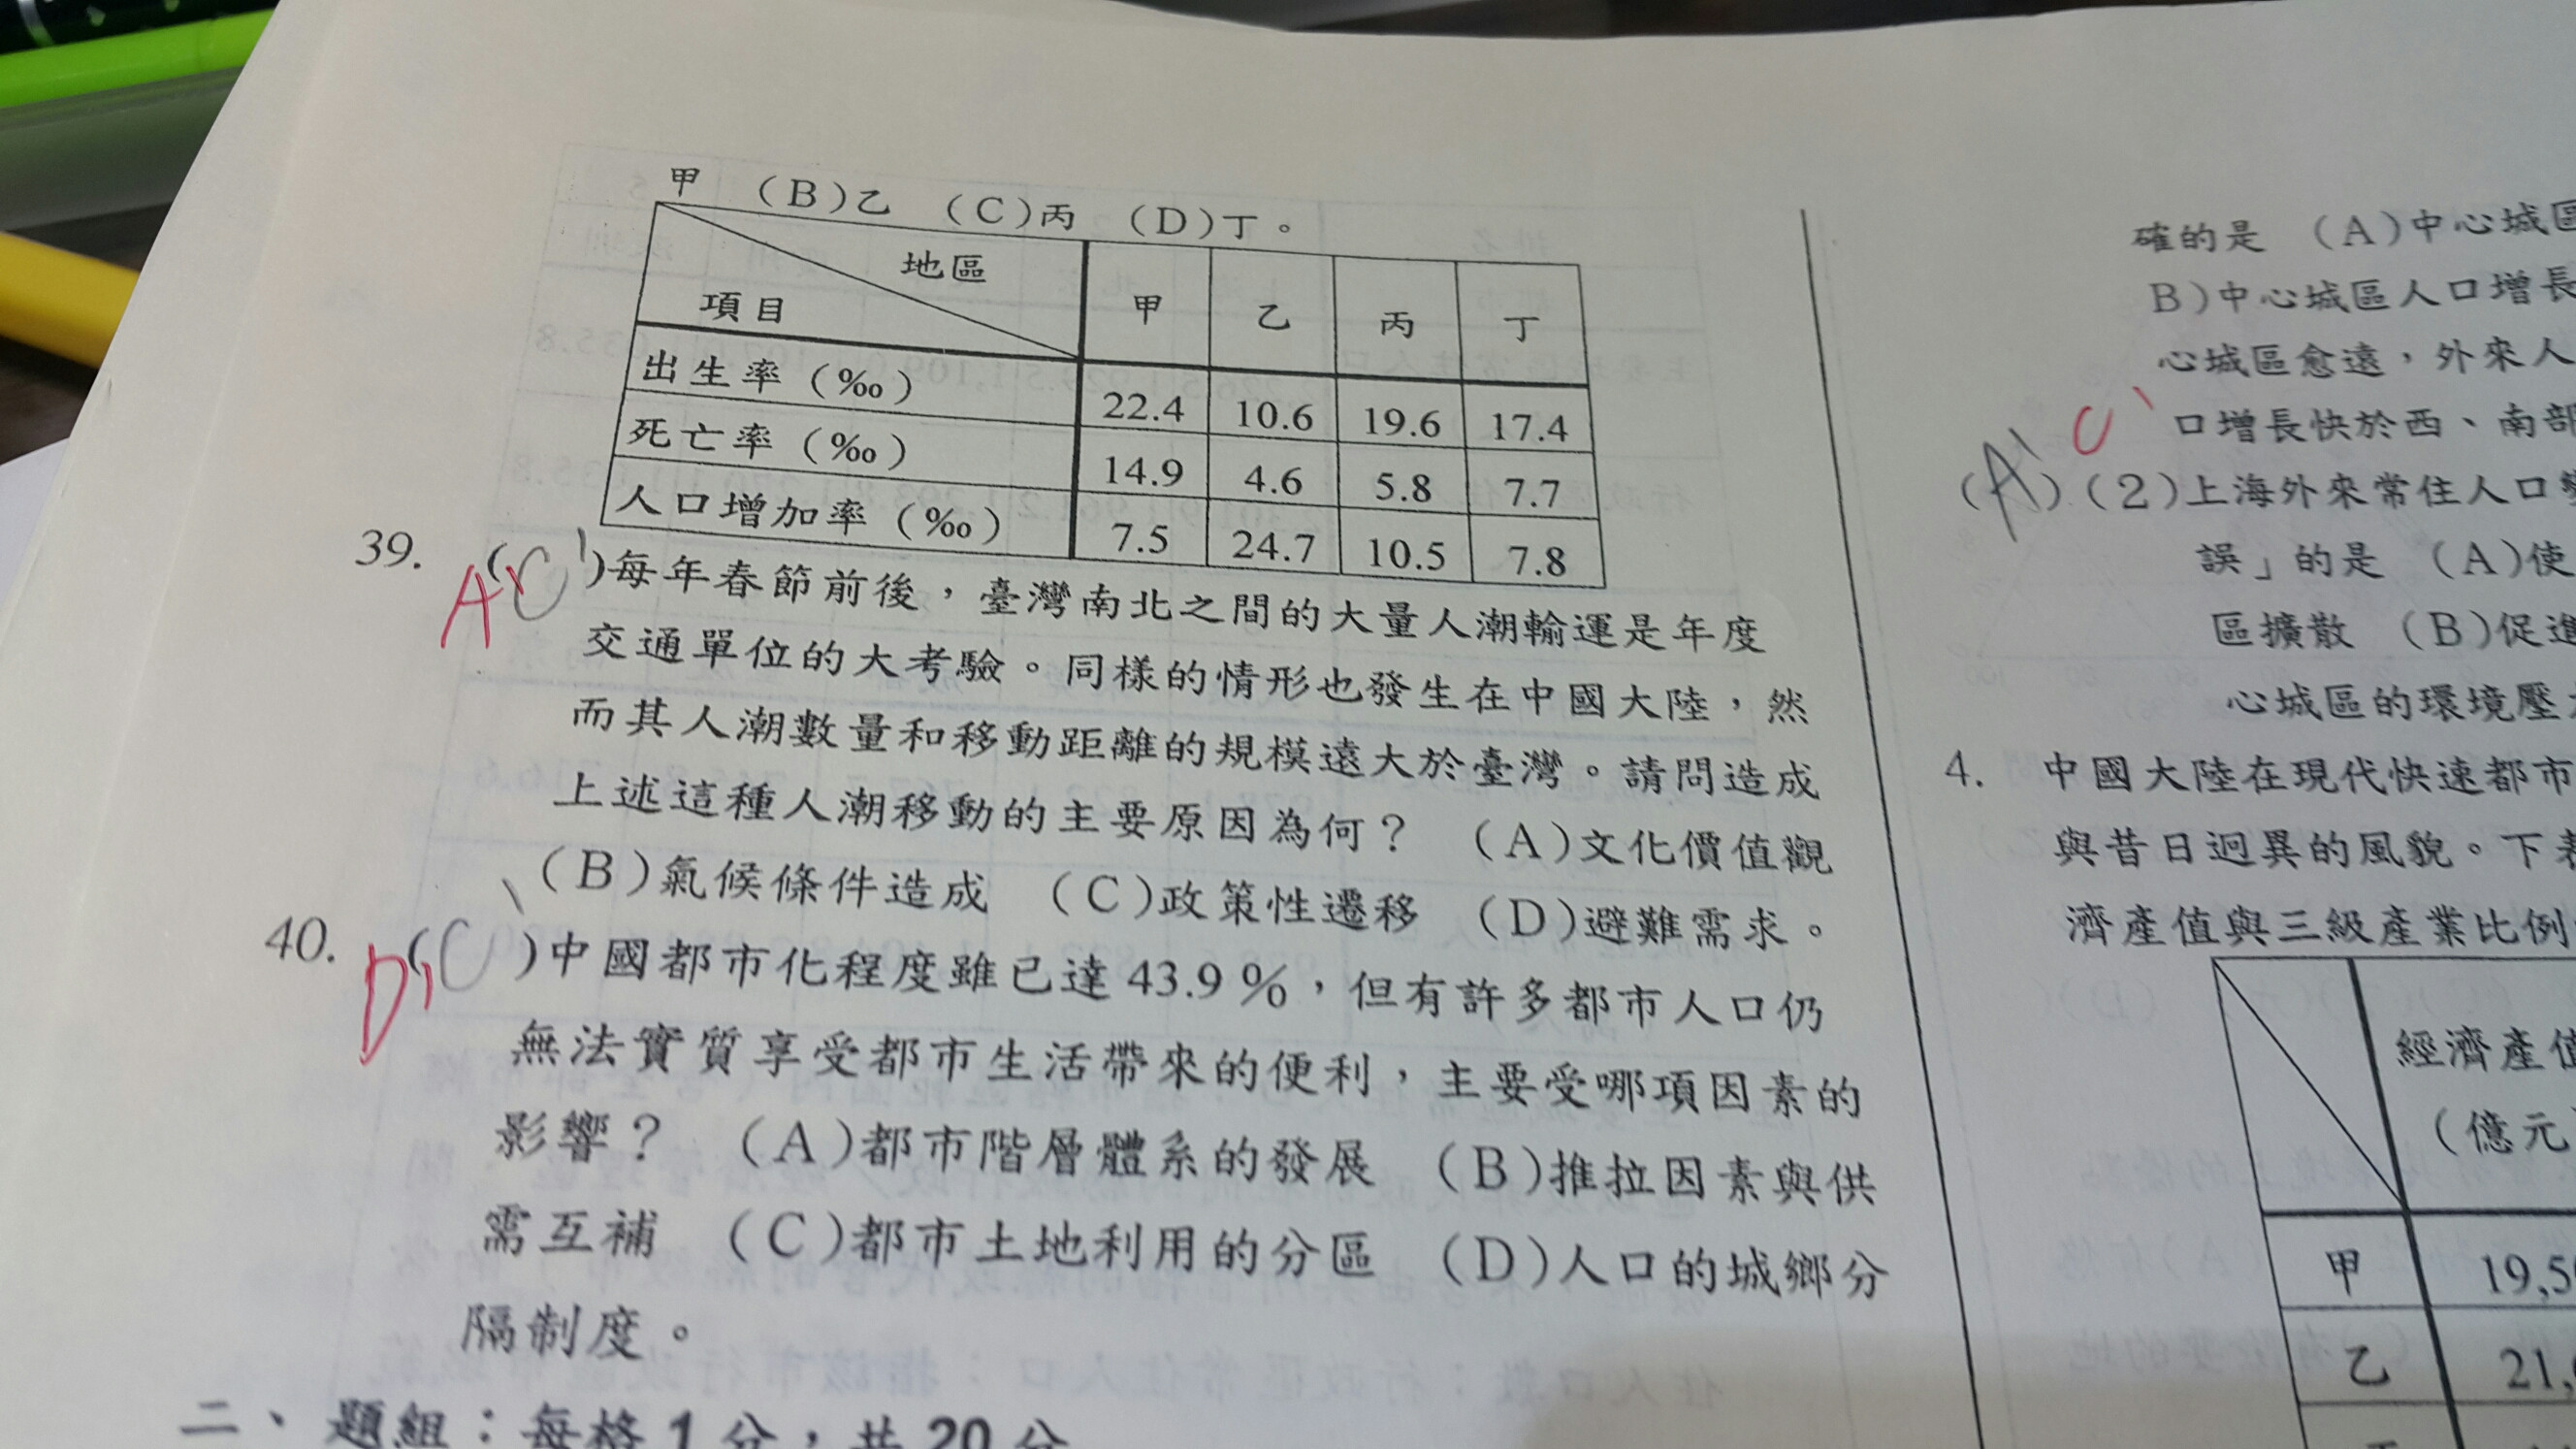 甲 (B)乙 (C)丙 (D)丁。
地區
項目
甲 乙 丙 丁
出生率(‰) 22.4 10.6 19.6 17.4
死亡率(‰) 14.9 4.6 5.8 7.7
人口增加率(‰) 7.5 24.7 10.5 7.8
39. A (C)每年春節前後，臺灣南北之間的大量人潮輸運是年度
交通單位的大考驗。同樣的情形也發生在中國大陸，然
而其人潮數量和移動距離的規模遠大於臺灣。請問造成
上述這種人潮移動的主要原因為何? (A)文化價值觀
(B)氣候條件造成 (C)政策性遷移 (D)避難需求。
40. D (C)中國都市化程度雖已達43.9%，但有許多都市人口仍
無法實質享受都市生活帶來的便利，主要受哪項因素的
影響? (A)都市階層體系的發展 (B)推拉因素與供
需互補 (C)都市土地利用的分區 (D)人口的城鄉分
隔制度。
二、題組:每格1分，共20分
確的是 (A)中心城區
B)中心城區人口增長
心城區愈遠，外來人
口增長快於西、南部
C
(A)(2)上海外來常住人口
誤」的是 (A)使
區擴散 (B)促進
心城區的環境壓
4. 中國大陸在現代快速都市
與昔日迥異的風貌。下
濟產值與三級產業比例
經濟產值
(億元
甲 19,5
乙 21,